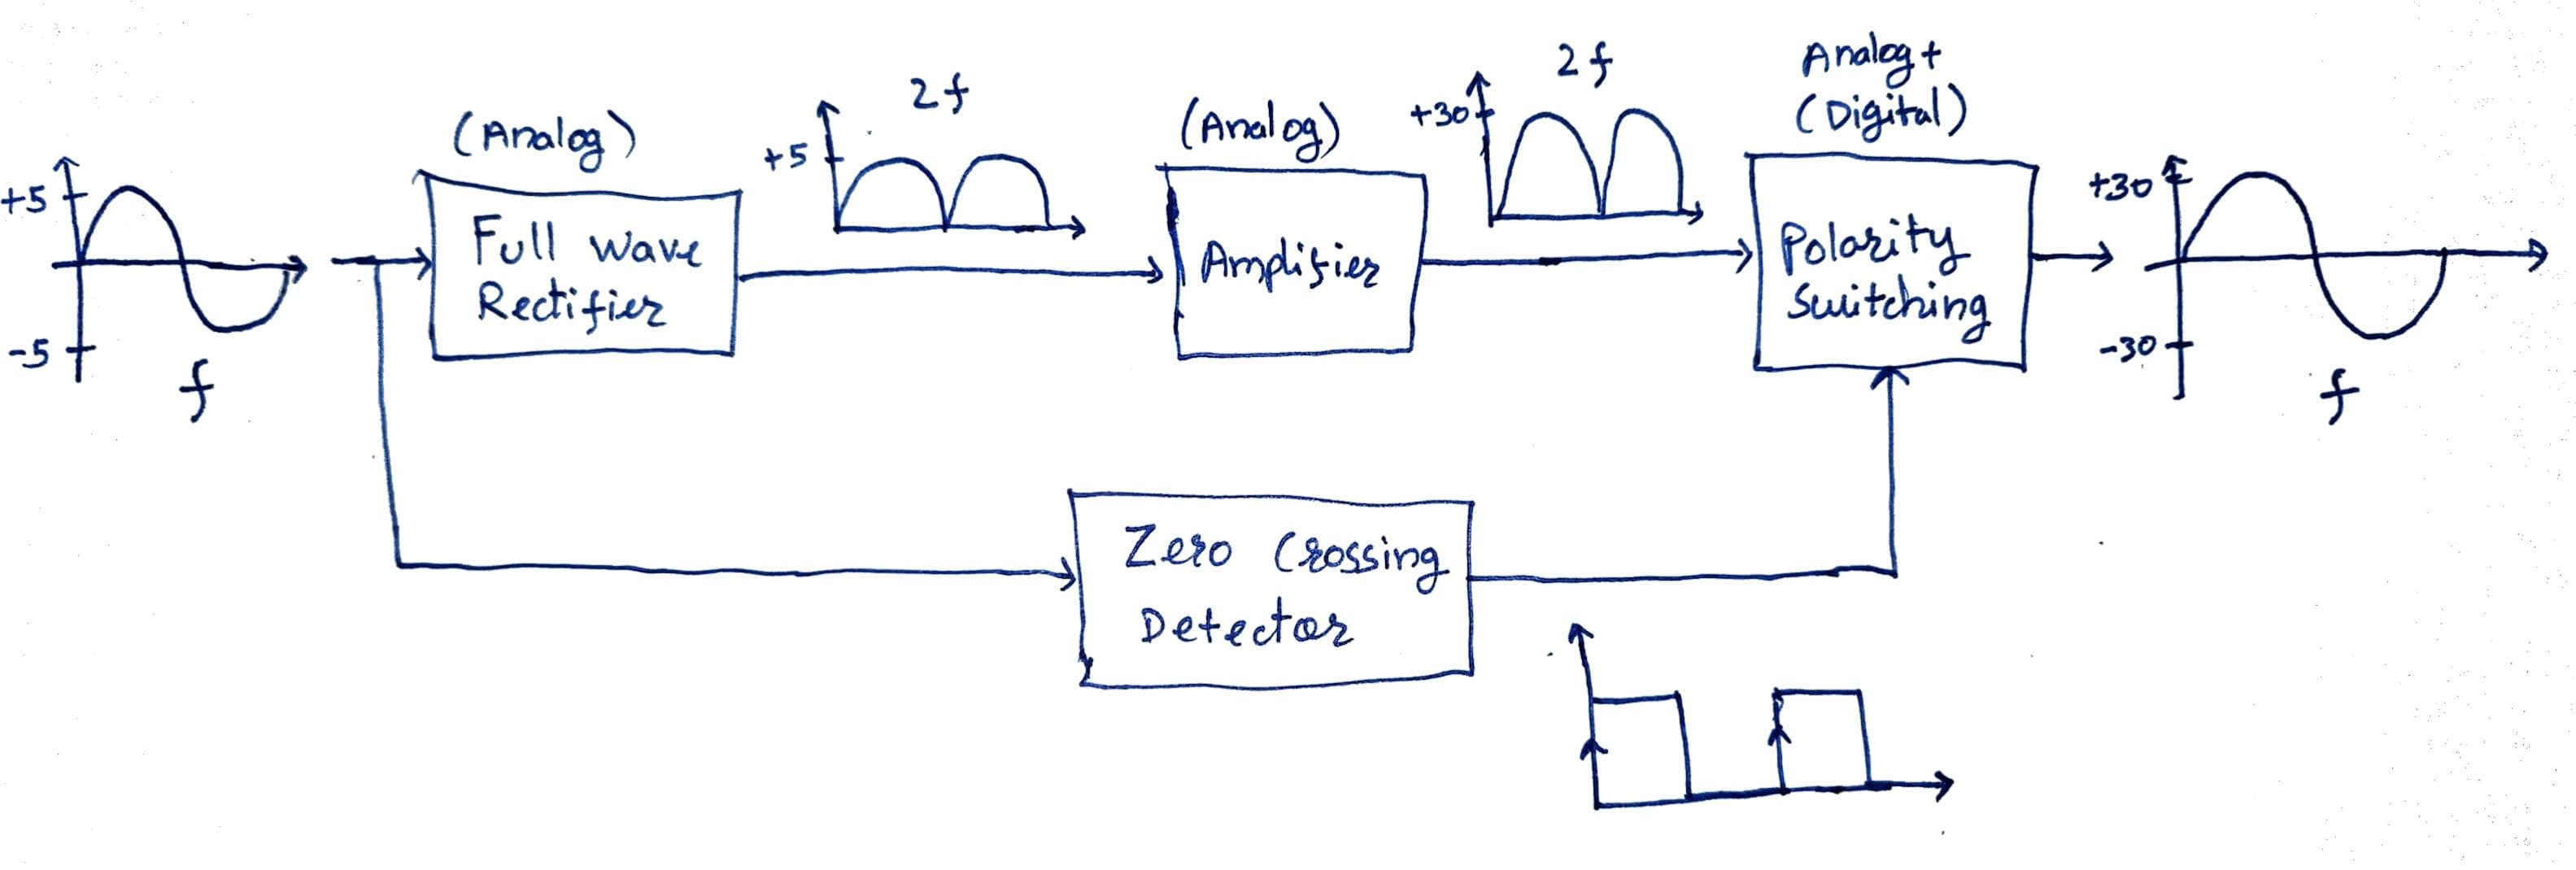 +5
-5
f
(Analog)
Full wave
Rectifier
2f
+5
(Analog)
Amplifier
2f
+30
Analog +
(Digital)
Polarity
Switching
+30
-30
f
Zero Crossing
Detector